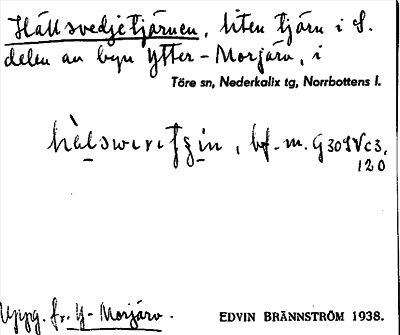 Hällsvedjetjärnen, liten tjärn i S.
delen av byn Ytter-Morjärv, i
Töre sn, Nederkalix tg, Norrbottens l.
bf. m. G309Vc3.
120
Uppg. fr. Y-Morjärv.
EDVIN BRÄNNSTRÖM 1938.